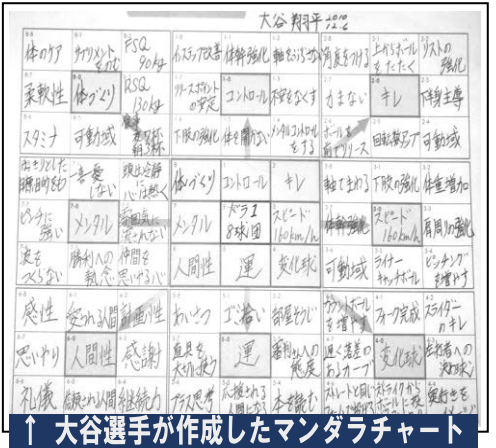 大谷翔平
体のケア サプリメントをのむ FSQ 90kg インステップ改善 体幹強化 軸をぶらさない 角度をつける 上からボールをたたく リストの強化
柔軟性 体づくり RSQ 130kg リリースポイントの安定 コントロール 不安をなくす 力まない キレ 下半身主導
スタミナ 可動域 下肢の強化 体を開かない メンタルコントロールをする ボールを前でリリース 回転数アップ 可動域
一喜一憂しない 頭は冷静に心は熱く 体づくり コントロール キレ 軸でまわる 下肢の強化 体重増加
ピンチに強い メンタル 雰囲気に流されない メンタル ドラ1 8球団 スピード 160km/h 体幹強化 スピード 160km/h 肩周りの強化
波をつくらない 勝利への執念 仲間を思いやる心 人間性 運 変化球 可動域 ライナーキャッチボール ピッチングを増やす
感性 愛される人間 計画性 あいさつ ゴミ拾い 部屋そうじ カウントボールを増やす フォーク完成 スライダーのキレ
思いやり 人間性 感謝 道具を大切に使う 運 審判さんへの態度 遅く落差のあるカーブ 変化球 左打者への決め球
礼儀 信頼される人間 継続力 プラス思考 応援される人間になる 本を読む
↑ 大谷選手が作成したマンダラチャート